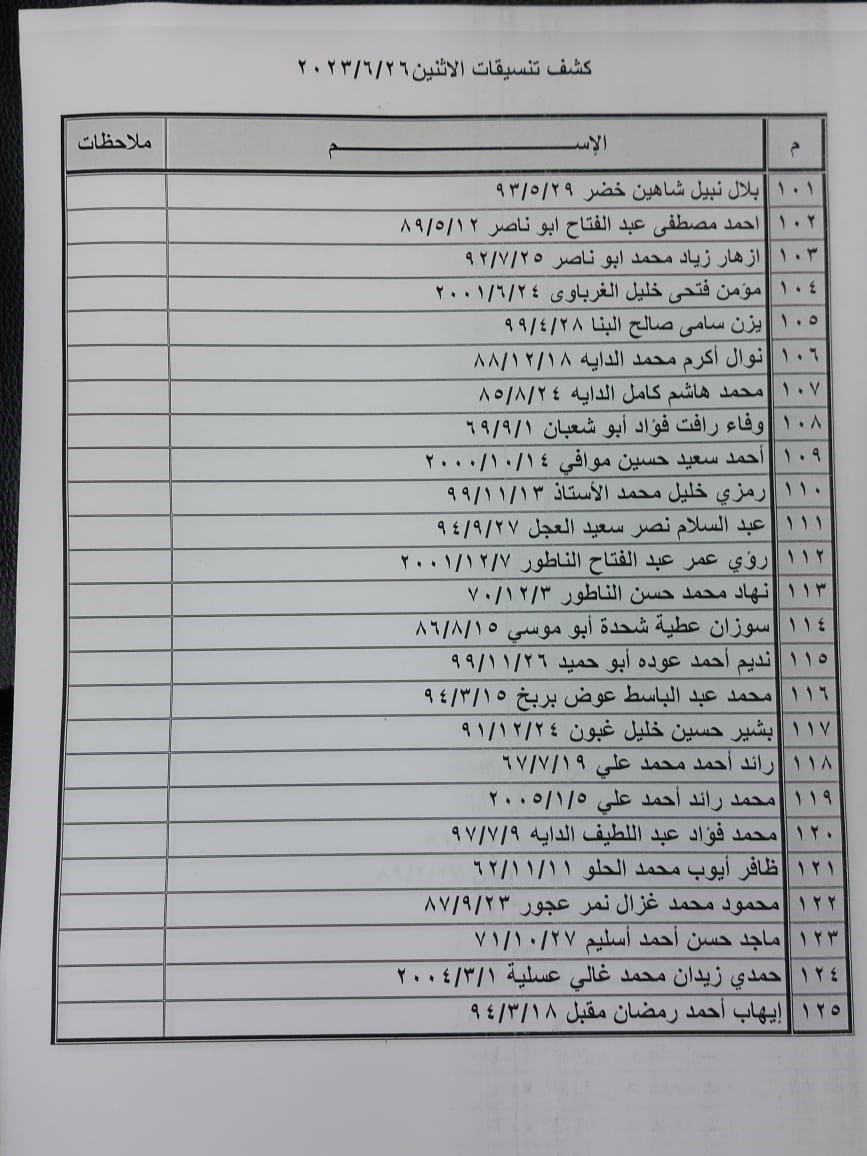 كشف تنسيقات الاثنين ٢٠٢٣/٦/٢٦
م الإســـــــــم ملاحظات
١٠١ بلال نبيل شاهين خضر ٩٣/٥/٢٩
١٠٢ احمد مصطفى عبد الفتاح ابو ناصر ٨٩/٥/١٢
١٠٣ ازهار زياد محمد ابو ناصر ٩٢/٧/٢٥
١٠٤ مؤمن فتحى خليل الغرباوى ٢٠٠١/٦/٢٤
١٠٥ يزن سامى صالح البنا ٩٩/٤/٢٨
١٠٦ نوال أكرم محمد الدايه ٨٨/١٢/١٨
١٠٧ محمد هاشم كامل الدايه ٨٥/٨/٢٤
١٠٨ وفاء رافت فؤاد أبو شعبان ٦٩/٩/١
١٠٩ أحمد سعيد حسين موافي ٢٠٠٠/١٠/١٤
١١٠ رمزي خليل محمد الأستاذ ٩٩/١١/١٣
١١١ عبد السلام نصر سعيد العجل ٩٤/٩/٢٧
١١٢ رؤي عمر عبد الفتاح الناطور ٢٠٠١/١٢/٧
١١٣ نهاد محمد حسن الناطور ٧٠/١٢/٣
١١٤ سوزان عطية شحدة أبو موسي ٨٦/٨/١٥
١١٥ نديم أحمد عوده أبو حميد ٩٩/١١/٢٦
١١٦ محمد عبد الباسط عوض بربخ ٩٤/٣/١٥
١١٧ بشير حسين خليل غبون ٩١/١٢/٢٤
١١٨ رائد أحمد محمد علي ٦٧/٧/١٩
١١٩ محمد رائد أحمد علي ٢٠٠٥/١/٥
١٢٠ محمد فؤاد عبد اللطيف الدايه ٩٧/٧/٩
١٢١ ظافر أيوب محمد الحلو ٦٢/١١/١١
١٢٢ محمود محمد غزال نمر عجور ٨٧/٩/٢٣
١٢٣ ماجد حسن أحمد أسليم ٧١/١٠/٢٧
١٢٤ حمدي زيدان محمد غالي عسلية ٢٠٠٤/٣/١
١٢٥ إيهاب أحمد رمضان مقبل ٩٤/٣/١٨